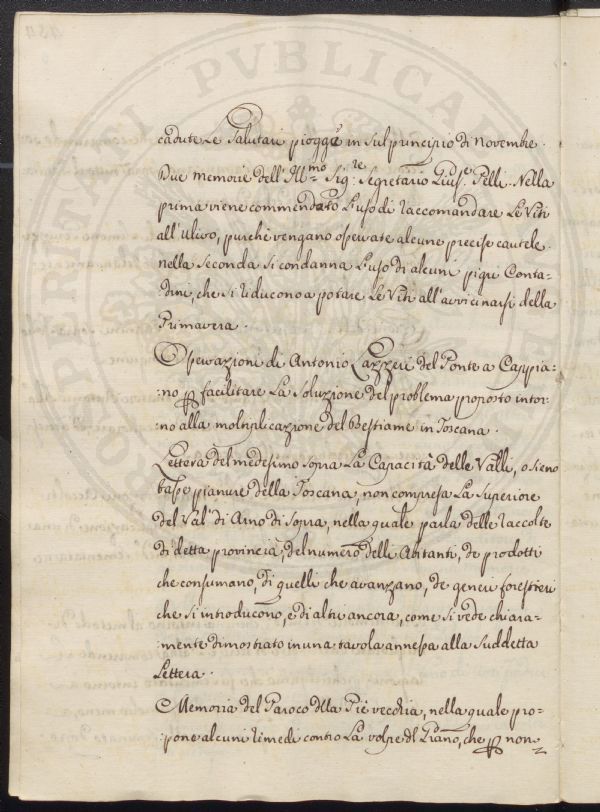 PROSPERITATI PVBLICAE
cadute le salutari piogge in sul principio di novembre.
Due memorie dell'Ill:mo Sig:re Segretario Gius:e Pelli. Nella
prima viene commendato l'uso di raccomandare le Viti
all'ulivo, purchè vengano osservate alcune precise cautele.
nella seconda si condanna l'uso di alcuni pigri Conta=
dini, che si riducono a potare le Viti all'avvicinarsi della
Primavera.
Operazioni di Antonio Lazzeri del Ponte a Cappia:
:no p facilitare la soluzione del problema proposto intor:
:no alla moltiplicazione del Bestiame in Toscana.
Lettera del medesimo sopra la Capacità delle Valli, o sieno
basse pianure della Toscana, non compresa la superiore
del Val' di Arno di sopra, nella quale parla delle raccolte
di detta provincia, del numero delli Abitanti, de prodotti
che consumano, di quelli che avanzano, de generi forestieri
che si introducono, e di altri ancora, come si vede chiara=
=mente dimostrato in una tavola annessa alla suddetta
Lettera.
Memoria del Paroco della Piè vecchia, nella quale pro=
:pone alcuni rimedi contro la volpe del Grano, che p non=